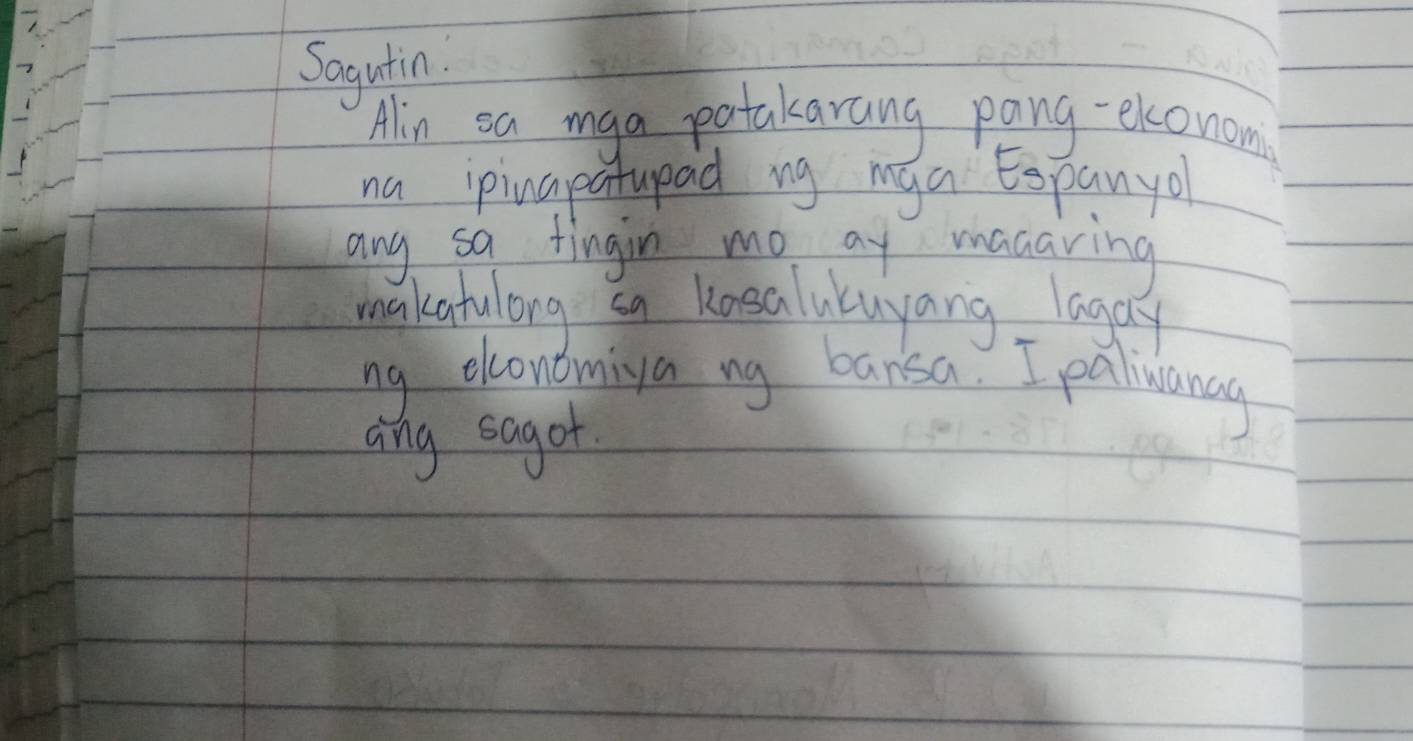 Sagutin:
Alin sa mga patakarang pang-ekonomiya
na ipinapatupad ng mga Espanyol
ang sa tingin mo ay maaaring
makatulong sa kasalukuyang lagay
ng ekonomiya ng bansa. Ipaliwanag
ang sagot.